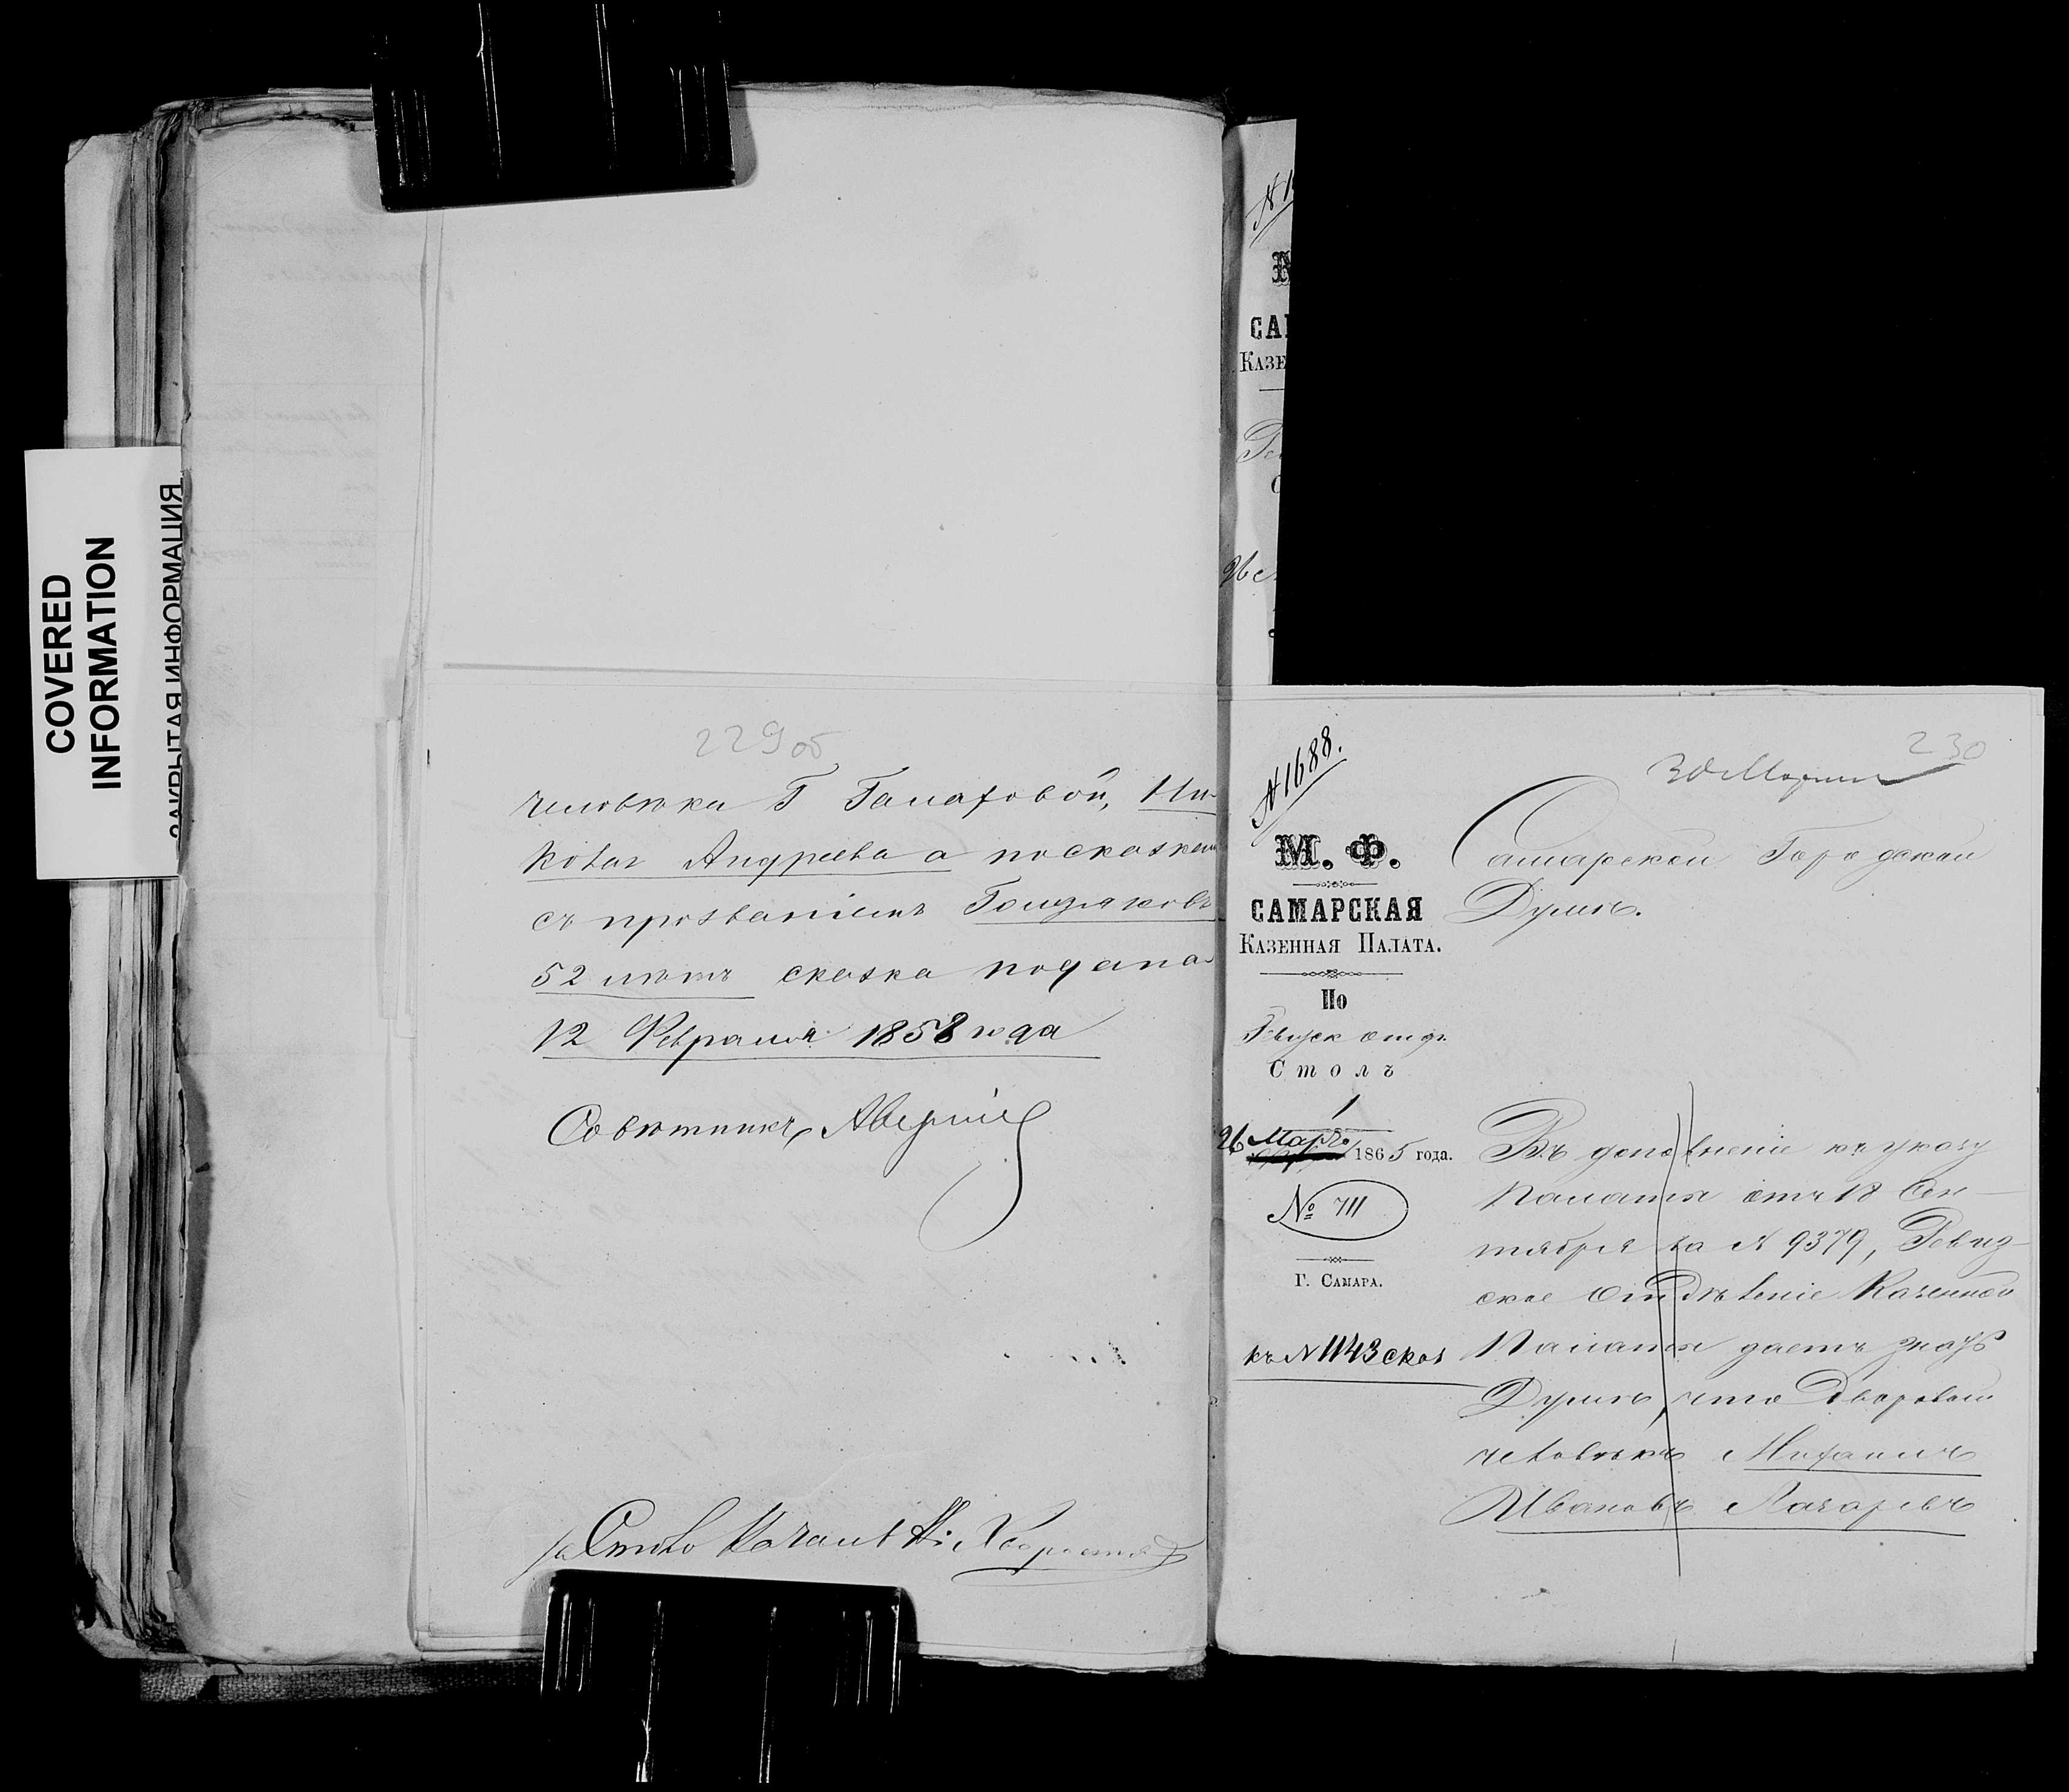 COVERED
INFORMATION
ЗАКРЫТАЯ ИНФОРМАЦИЯ
229об
человѣка Г Галаховой, Ни-
колай Андреева а по сказкѣ
съ прозваніемъ
52 лѣтъ сказка подана
12 Февраля 1858 года
Совѣтникъ
за Столо Начал
САМ
КАЗЕ
230
30 Марта
№ 1688.
М. Ф.
САМАРСКАЯ
КАЗЕННАЯ ПАЛАТА.
По
Ревизск отдѣ
Столъ
1
26 Март 1865 года.
№ 711
Г. САМАРА.
къ № 1143 сказ
Самарской Городской
Думѣ.
Въ дополненіе къ указу
Палаты отъ 18 Сен-
тября за № 9379, Ревиз-
ское Отдѣленіе Казенной
Палаты даетъ знать
Думѣ, что Дворовый
человѣкъ Михаилъ
Ивановъ Лазаревъ